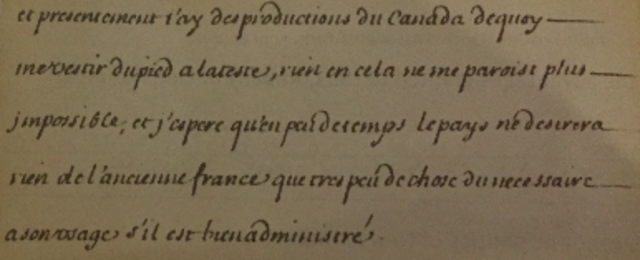 et presentement j'ay des productions du Canada dequoy
me vestir du pied a la teste, rien en cela ne me paroist plus
jmpossible, et j'espere qu'en peu de temps le pays ne desirera
rien de l'ancienne france que tres peu de chose du necessaire
a son usage s'il est bien administré.